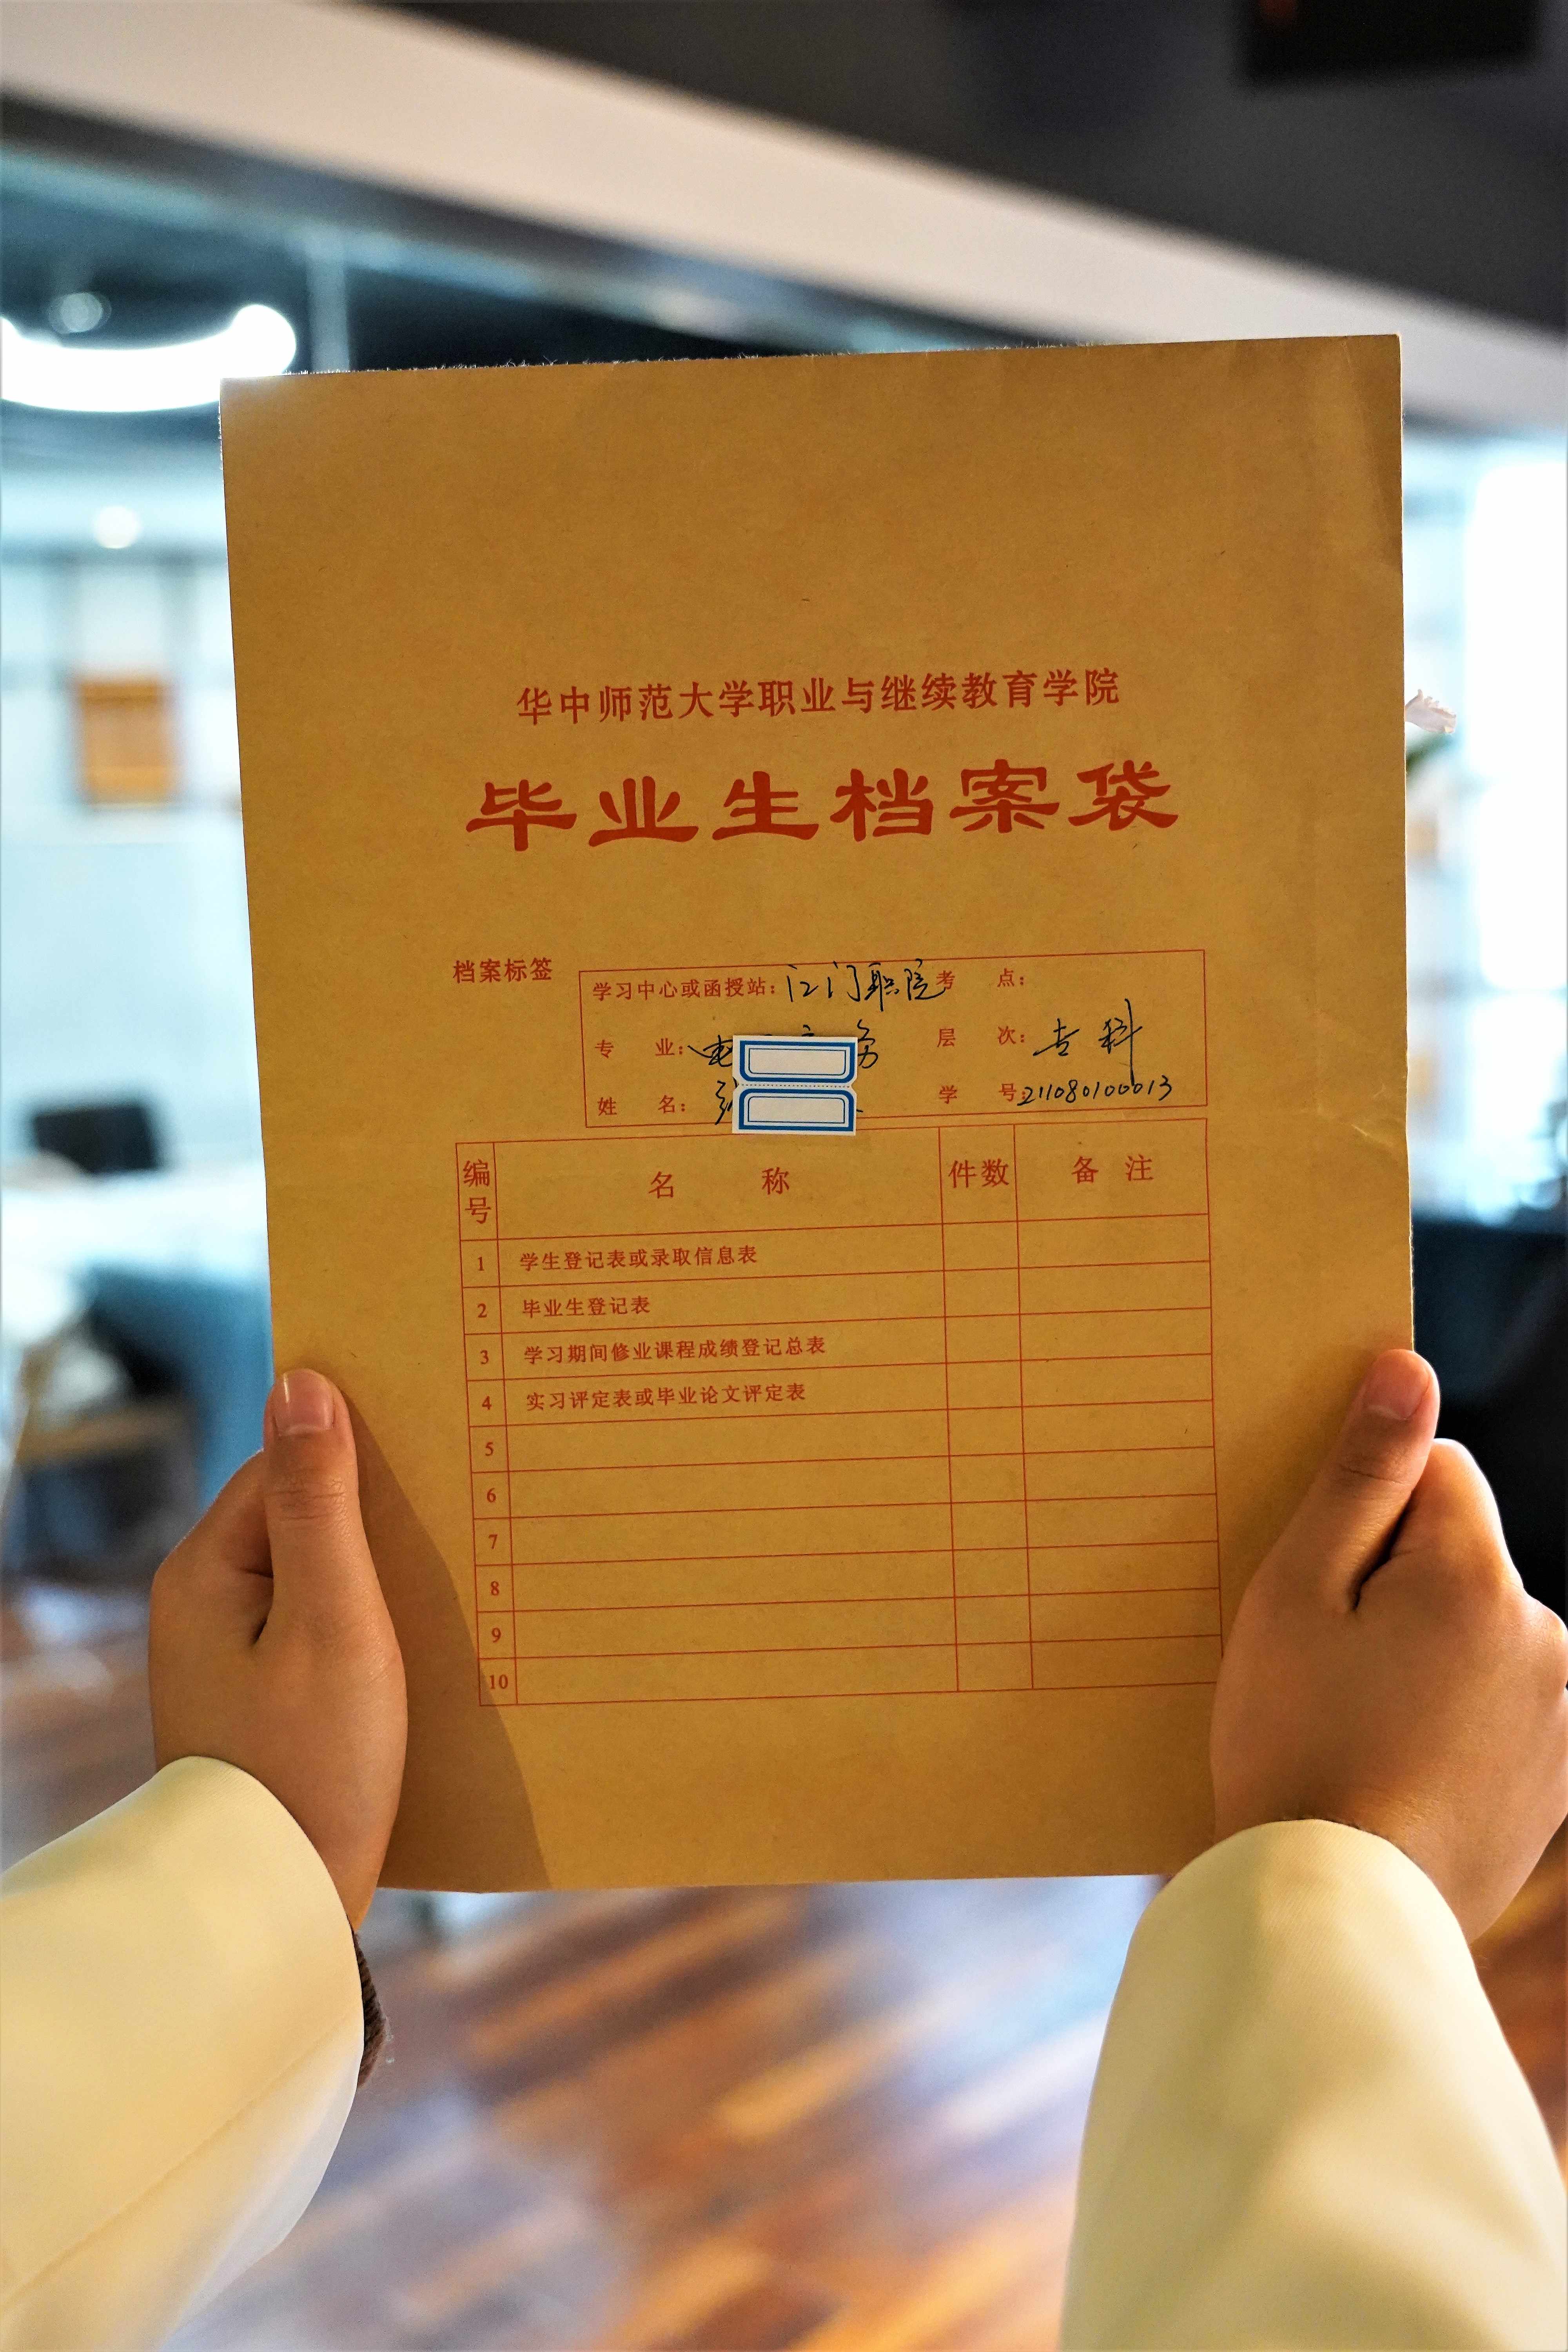 华中师范大学职业与继续教育学院
毕业生档案袋
档案标签
学习中心或函授站：江门职院 考 点：
专 业： 务 层 次：专科
姓 名： 学 号：211080100013
编号 名 称 件数 备 注
1 学生登记表或录取信息表
2 毕业生登记表
3 学习期间修业课程成绩登记总表
4 实习评定表或毕业论文评定表
5
6
7
8
9
10